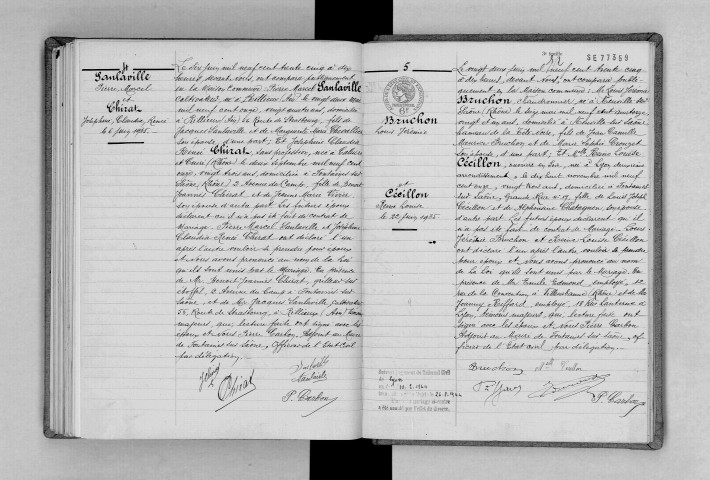 4
Sanlaville
Pierre Marcel
et
Thirat
Joséphine Claudia Renée
le 6 juin 1935.
Le six juin mil neuf cent trente cinq à dix
heures, devant Nous, ont comparu publiquement
en la Maison commune: Pierre Marcel Sanlaville
né à Rillieux (Ain) le vingt deux
mil neuf cent onze, vingt quatre ans, domicilié
à Rillieux (Ain) Route de Strasbourg, fils de
Jacques Sanlaville et de Marguerite Marie Chevallier
son épouse d'une part; Et Joséphine Claudia
Renée Thirat, sans profession, née à Caluire
et Cuire (Rhône) le deux Septembre mil neuf cent
onze, vingt trois ans, domiciliée à Fontaines sur
Saône, (Rhône) 2 Avenue du Camp, fille de Benoit
Joannès Thirat et de Jeanne Marie
son épouse d'autre part. Les futurs époux
déclarent qu'il n'a pas été fait de contrat de
Mariage. Pierre Marcel Sanlaville et Joséphine
Claudia Renée Thirat ont déclaré l'un
après l'autre vouloir se prendre pour époux
et Nous avons prononcé au nom de la loi
qu'ils sont unis par le Mariage. En présence
de Mr Benoit Joannès Thirat,
2 Avenue du Camp à Fontaines sur
Saône, et de Mr Jacques Sanlaville,
55, Route de Strasbourg, à Rillieux (Ain) témoins
majeurs, qui, lecture faite ont signé avec les
époux et Nous Pierre Carbon, Adjoint au Maire
de Fontaines sur Saône, Officier de l'Etat Civil
par délégation.
Thirat
Sanlaville
P. Carbon
5
Bruchon
Louis Jérémie
et
Cécillon
Renée Louise
le 22 juin 1935
SE77359
Le vingt deux juin mil neuf cent trente cinq
à dix heures, devant Nous, ont comparu publi-
quement en la Maison commune: Mr Louis Jérémie
Bruchon, Chaudronnier, né à Neuville sur
Saône (Rhône) le seize mai mil neuf cent quatorze,
vingt et un ans, domicilié à Neuville sur Saône
fils de Jean Camille
Maurice Bruchon et de Marie Sophie
son épouse, d'une part; Et Melle Renée Louise
Cécillon, née à Lyon deuxième
arrondissement, le dix huit novembre mil neuf
cent onze, vingt trois ans, domiciliée à Fontaines
sur Saône, Grande Rue n° 17, fille de Louis Joseph
Cécillon et de Alphonsine Chatagnon son épouse
d'autre part. Les futurs époux déclarent qu'il
n'a pas été fait de contrat de Mariage. Louis
Jérémie Bruchon et Renée Louise Cécillon
ont déclaré l'un après l'autre vouloir se prendre
pour époux et Nous avons prononcé au nom
de la Loi qu'ils sont unis par le Mariage. En
présence de Mr Emile Edmond, employé,
rue de la Convention à Villeurbanne (Rhône) et de Mr
Joanny Reffard, employé, 18 Rue Lanterne à
Lyon, témoins majeurs, qui, lecture faite ont
signé avec les époux et Nous Pierre Carbon
Adjoint au Maire de Fontaines sur Saône, of-
ficier de l'Etat civil par délégation.
Bruchon
P. Carbon
Lyon